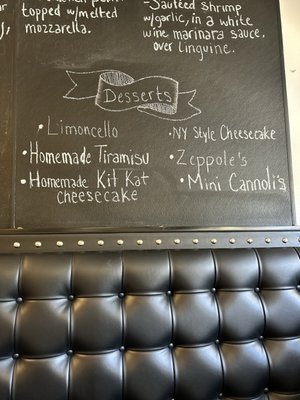 topped w/melted
mozzarella.
-Sauteed shrimp
w/garlic, in a white
wine marinara sauce,
over linguine.
Desserts
• Limoncello
• Homemade Tiramisu
• Homemade Kit Kat
cheesecake
• NY Style Cheesecake
• Zeppole's
• Mini Cannoli's